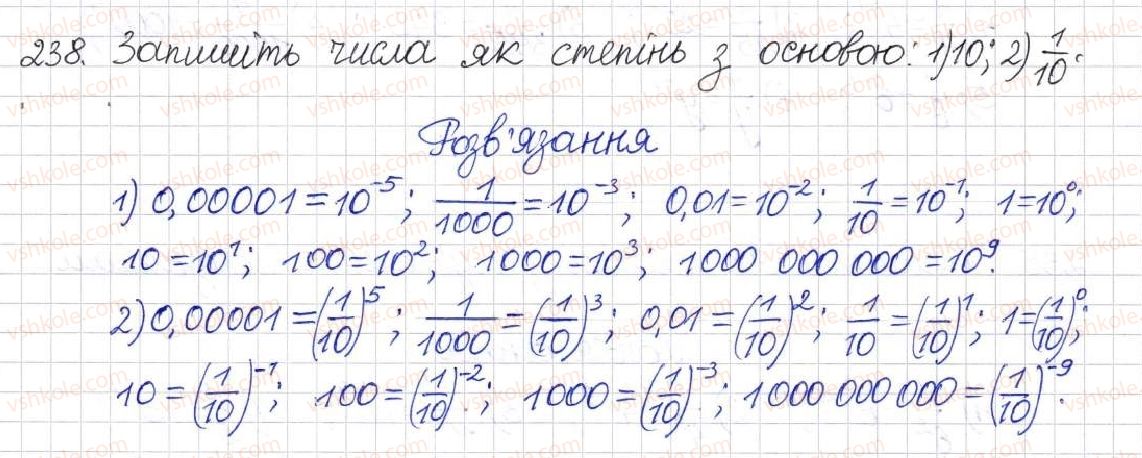 238. Запишіть числа як степінь з основою: 1) 10; 2) 1/10.
Розв'язання
1) 0,00001 = 10⁻⁵; 1/1000 = 10⁻³; 0,01 = 10⁻²; 1/10 = 10⁻¹; 1 = 10⁰;
10 = 10¹; 100 = 10²; 1000 = 10³; 1000 000 000 = 10⁹.
2) 0,00001 = (1/10)⁵; 1/1000 = (1/10)³; 0,01 = (1/10)²; 1/10 = (1/10)¹; 1 = (1/10)⁰;
10 = (1/10)⁻¹; 100 = (1/10)⁻²; 1000 = (1/10)⁻³; 1000 000 000 = (1/10)⁻⁹.
vshkole.com